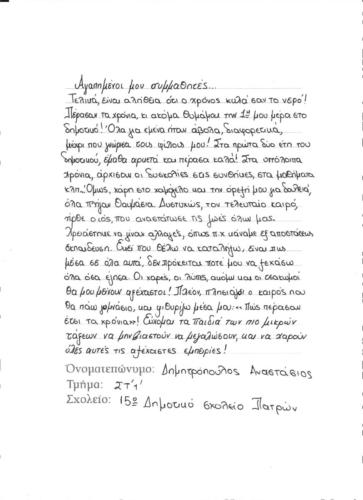 Αγαπημένοι μου συμμαθητές...
Τελικά, είναι αλήθεια ότι ο χρόνος κυλά σαν το νερό!
Πέρασαν τα χρόνια, κι ακόμα θυμάμαι την 1η μου μέρα στο
δημοτικό! Όλα για εμένα ήταν άβολα, διαφορετικά,
μέχρι που γνώρισα τους φίλους μου! Στα πρώτα δύο έτη του
δημοτικού, έμαθα αρκετά και πέρασα καλά! Στα υπόλοιπα
χρόνια, άρχισαν οι δυσκολίες στις συνθήκες, στα μαθήματα
κλπ. Όμως, χάρη στο χαμόγελο και την όρεξή μου για δουλειά,
όλα πήγαν θαυμάσια. Δυστυχώς, τον τελευταίο καιρό,
ήρθε ο ιός, που αναστάτωσε τις ζωές όλων μας.
Χρειάστηκε να γίνουν αλλαγές, όπως π.χ κάναμε εξ αποστάσεως
εκπαίδευση. Εκεί που θέλω να καταλήξω, είναι πως
μέσα σε όλα αυτά, δεν πρόκειται ποτέ μου να ξεχάσω
όλα όσα έζησα. Οι χαρές, οι λύπες, ακόμη και οι τσακωμοί
θα μου μείνουν αξέχαστοι! Πλέον, πλησιάζει ο καιρός που
θα πάω γυμνάσιο, και ψιθυρίζω μέσα μου: <<Πώς πέρασαν
έτσι τα χρόνια;>>! Εύχομαι τα παιδιά των πιο μικρών
τάξεων να μην βιαστούν να μεγαλώσουν, και να χαρούν
όλες αυτές τις αξέχαστες εμπειρίες!
Ονοματεπώνυμο: Δημητρόπουλος Αναστάσιος
Τμήμα: ΣΤ'1'
Σχολείο: 15ο Δημοτικό σχολείο Πατρών